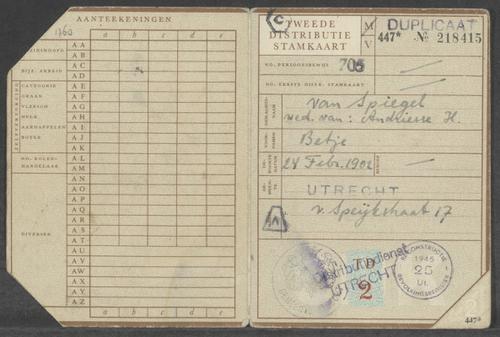 AANTEEKENINGEN
1760
a b c d e
GEZINSHOOFD
AA
AB
BIJZ. ARBEID
AC
AD
ZELFVERZORGING
CATEGORIE
AE
GRAAN
AF
VLEESCH
AG
MELK
AH
AARDAPPELEN
AI
BOTER
AJ
AK
NO. KOLEN-
HANDELAAR
AL
AM
AN
AO
AP
AQ
AR
AS
DIVERSEN
AT
AU
AV
AW
AX
AY
AZ
a b c d e
C
TWEEDE
DISTRIBUTIE
STAMKAART
M
V
DUPLICAAT
447* No 218415
NO. PERSOONSBEWIJS
705
NO. EERSTE DISTR. STAMKAART
van Spiegel
wed. van: Andriesse H.
Betje
24 Febr. 1902
UTRECHT
v. Speijkstraat 17
A
Distributiedienst
UTRECHT
TD
2
RECONSTRUCTIE
1945
25
Ut.
BEVOLKINGSREGISTER
447*